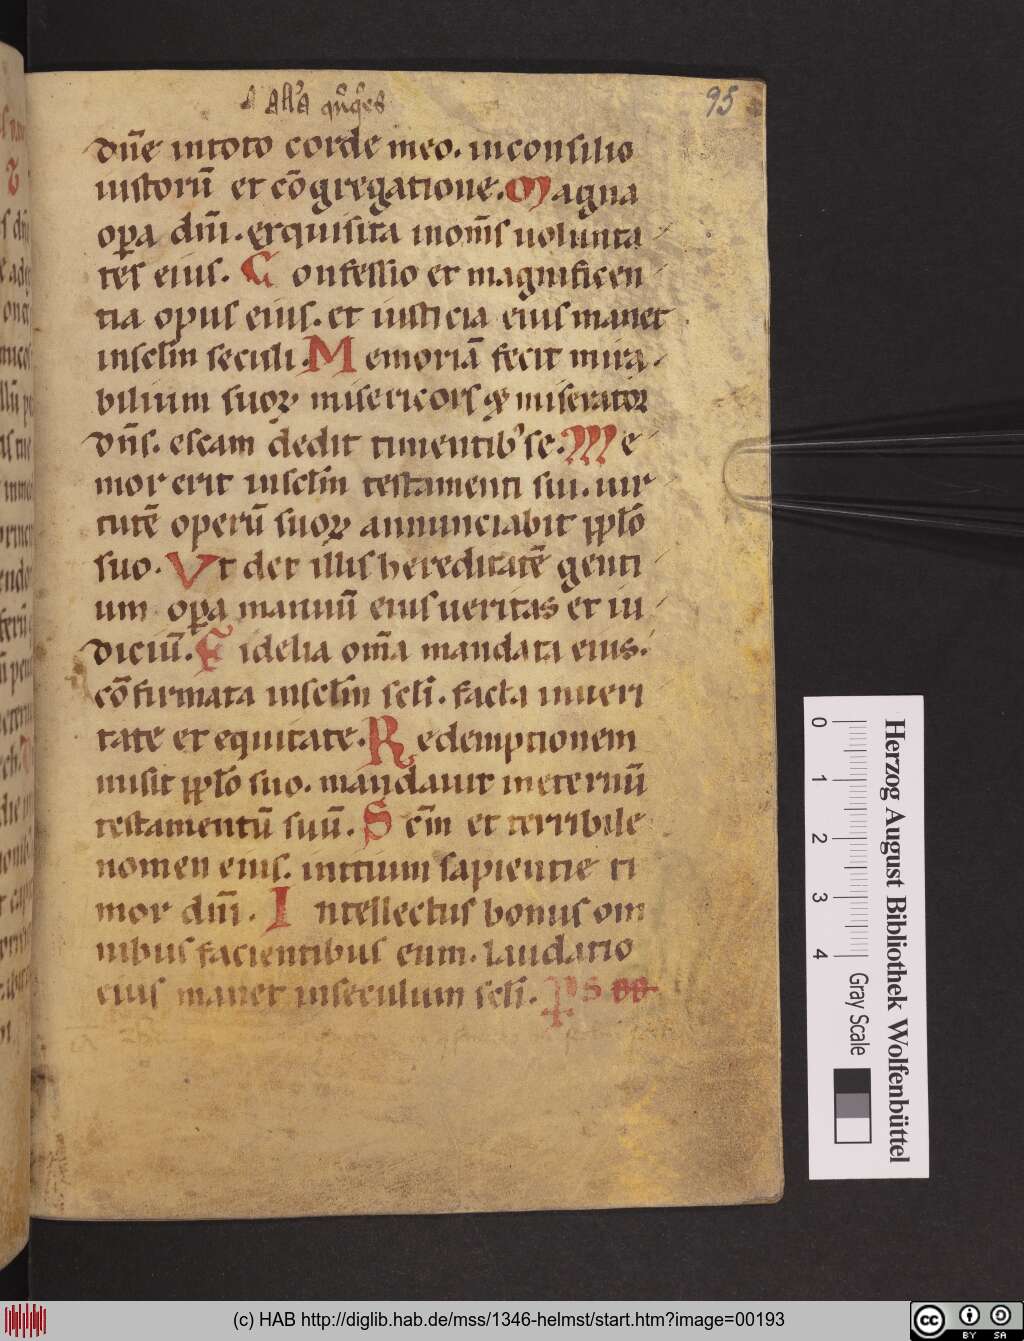 95
dn̄e in toto corde meo. in consilio
iustorū et cōgregatione. Magna
opa dn̄i. exquisita in om̄s uolunta
tes eius. Confessio et magnificen
tia opus eius. et iusticia eius manet
in sc̄lm seculi. Memoriā fecit mira
bilium suoꝝ misericors ⁊ miserator
dn̄s. escam dedit timentib' se. Me
mor erit in sc̄lm testamenti sui. uir
tutē operū suoꝝ annunciabit pplō
suo. Vt det illis hereditatē genti
um opa manuū eius ueritas et iu
diciū. Fidelia om̄a mandata eius.
cōfirmata in sc̄lm sc̄li. facta in ueri
tate et equitate. Redemptionem
misit pplō suo. mandauit in eternū
testamentū suū. Sc̄m et terribile
nomen eius. initium sapientie ti
mor dn̄i. Intellectus bonus om
nibus facientibus eum. laudatio
eius manet in seculum sc̄li. PS
0 1 2 3 4
Gray Scale
Herzog August Bibliothek Wolfenbüttel
(c) HAB http://diglib.hab.de/mss/1346-helmst/start.htm?image=00193
cc BY SA